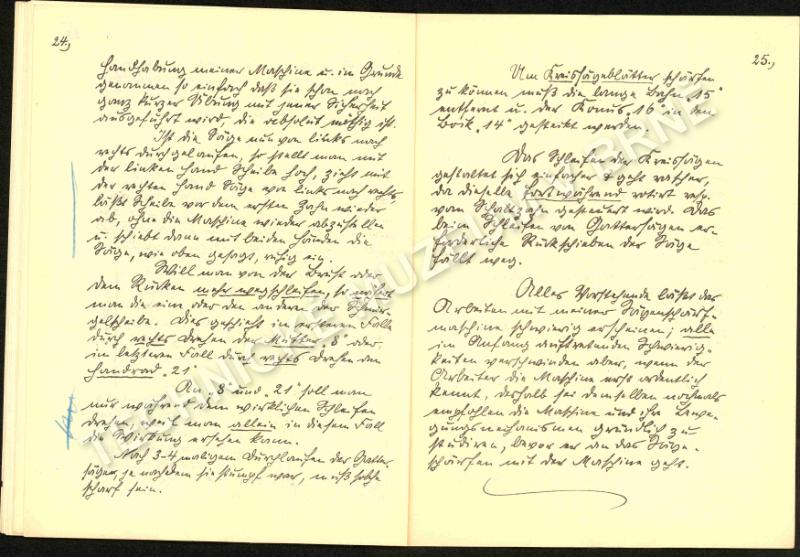 24.,
Handhabung meiner Maschine u. im Grunde
genommen so einfach daß sie schon nach
ganz kurzer Übung mit jener Sicherheit
ausgeführt wird, die absolut nötig ist.
Ist die Säge nun von links nach
rechts durchgelaufen, so stellt man mit
der linken Hand Scheibe hoch, zieht mit
der rechten Hand Säge von links nach rechts,
läßt Scheibe vor dem ersten Zahn wieder
ab, ohne die Maschine wieder abzustellen
u. schiebt dann mit beiden Händen die
Säge, wie oben gesagt, ruhig ein.
Will man von der Brust oder
dem Rücken mehr wegschleifen, so nähert
man die eine oder den anderen der Schmir-
gelscheibe. Dies geschieht im ersteren Falle
durch rechts Drehen der Mutter „8" oder
im letzteren Fall durch rechts Drehen am
Handrad „21"
An „8" und „21" soll man
nur während dem wirklichen Schleifen
drehen, weil man allein in diesem Fall
die Wirkung ersehen kann.
Nach 3-4 maligem Durchlaufen der Gatter-
sägen, je nachdem sie stumpf war, muß solche
scharf sein.
25.,
Um Kreissägeblätter schärfen
zu können muß die lange Bahn „15"
entfernt u. der Konus „16" in den
Bock „14" gesteckt werden.
Das Schleifen der Kreissägen
gestaltet sich einfacher & geht rascher,
da dieselbe fortwährend rotirt resp.
vom Schaltzahn gesteuert wird. Das
beim Schleifen von Gattersägen er-
forderliche Rückschieben der Säge
fällt weg.
Alles Vorstehende läßt das
Arbeiten mit meiner Sägenschärf-
maschine schwierig erscheinen; alle
im Anfang auftretenden Schwierig-
keiten verschwinden aber, wenn der
Arbeiter die Maschine erst ordentlich
kennt, deshalb sei demselben nochmals
empfohlen die Maschine und ihre Bewe-
gungsmechanismen gründlich zu
studiren, bevor er an das Säge-
schärfen mit der Maschine geht.
TECHNICKÉ MUZEUM V BRNĚ